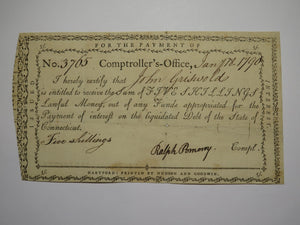 FOR THE PAYMENT OF
No. 3765 Comptroller's-Office, Jany 1790
I hereby certify that John Griswold
is entitled to receive the Sum of FIVE SHILLINGS
Lawful Money, out of any Funds appropriated for the
Payment of interest on the Liquidated Debt of the State of
Connecticut.
Five Shillings
Ralph Pomeroy Compt.
HARTFORD: PRINTED BY HUDSON AND GOODWIN.